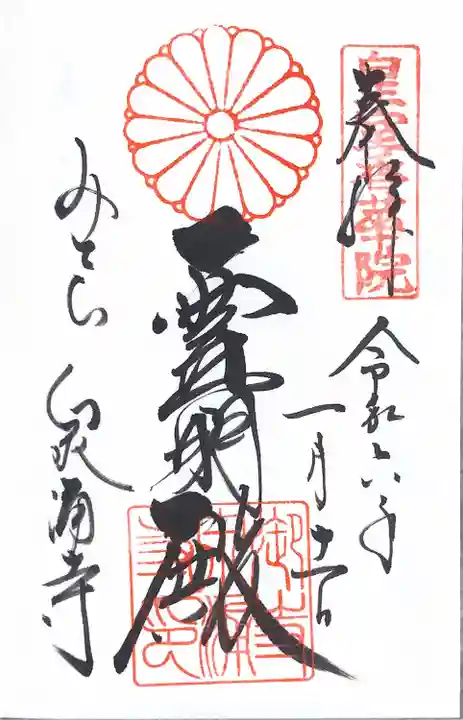 奉拝
皇室香華院
令和六年
一月十一日
霊明殿
御寺
泉涌
寺印
みてら 泉涌寺